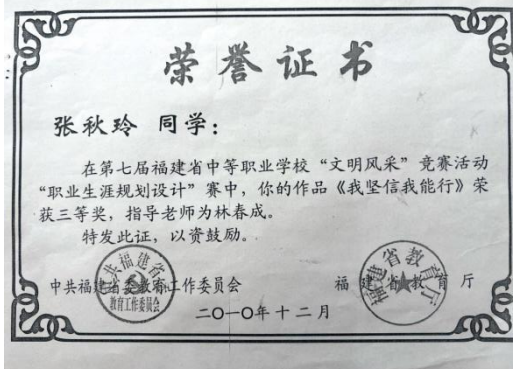 荣誉证书
张秋玲 同学：
在第七届福建省中等职业学校“文明风采”竞赛活动
“职业生涯规划设计”赛中，你的作品《我坚信我能行》荣
获三等奖，指导老师为林春成。
特发此证，以资鼓励。
中共福建省委教育工作委员会 福建省教育厅
中共福建省委 教育工作委员会 福建省教育厅
二〇一〇年十二月